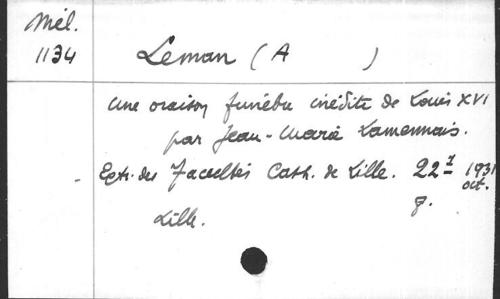 Mél.
1134
Leman (A )
Une oraison funèbre inédite de Louis XVI
par Jean-Marie Lamennais.
- Extr. des Facultés Cath. de Lille. 22 1931
oct.
Lille. 8.